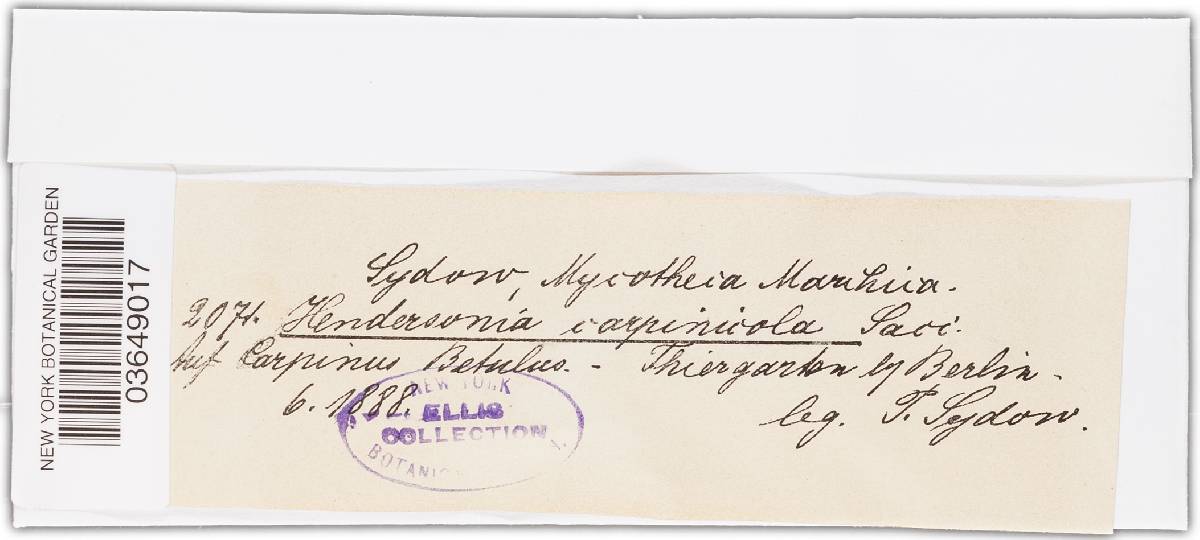 NEW YORK BOTANICAL GARDEN
03649017
Sydow, Mycotheca Marchica.
2074. Hendersonia carpinicola Sacc.
Auf Carpinus Betulus. - Thiergarten b/ Berlin -
6. 1888.
leg. P. Sydow.
NEW YORK
ELLIS
COLLECTION
BOTANICAL